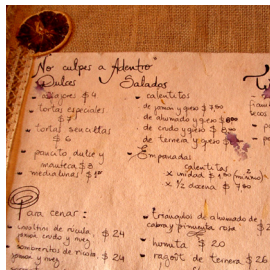 No culpes a Adentro
Dulces
alfajores $4
tortas especiales
$7
tortas sencillas
$6
pancito dulce y
manteca $3
medialunas $1
Salados
calentitos
de jamón y queso $7
de ahumado y queso $8
de crudo y queso $
de ternera y queso
Empanadas
calentitas
x unidad $
x ½ docena $
Para cenar:
de rúcula,
jamón crudo y $24
sombreritos de rúcula,
jamón y $24
triángulos de ahumado de
cabra y primavera rosa $2
humita $20
ragout de ternera $26